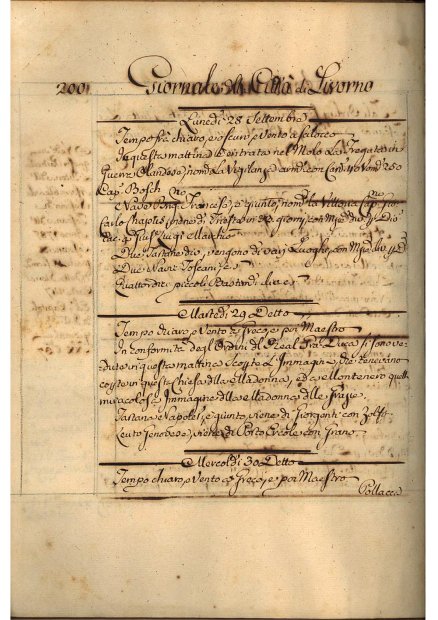 200
Giornale della Città di Livorno
Lunedì 28 Settembre
Tempo frà chiaro, e oscuro, e Vento a Scirocco
In questa mattina è entrata nel Molo la Fregata in
Guerra Olandese, nom.a La Vigilanza arm. con Can. 40 Uom. 250
Cap.o Bosch
Nave Franzese, è giunto, nom.ta la Vittoria Cap.no
Carlo viene di in giorni, con
Due Tartane dio, vengono di varj Luoghi, con
Due Navi Toscani
Quattordici piccoli Bastim.ti diversi
Martedì 29 Detto
Tempo chiaro, e Vento a Greco, e poi Maestro
In conformità degli Ordini del Real Gra Duca si sono ve
dute in questa mattina Scoperte l'Immagine, che tenevano
coperte in questa Chiesa della Madonna, ed a Montenero quella
miracolosa Immagine della Madonna delle Grazie
Tartana Napolet.a, è giunto, viene di Giorgenti con Zolfi
Leuto Genovese, viene di Porto Ercole con Grano
Mercoldì 30 Detto
Tempo chiaro, e Vento a Greco, e poi Maestro
Pollacca